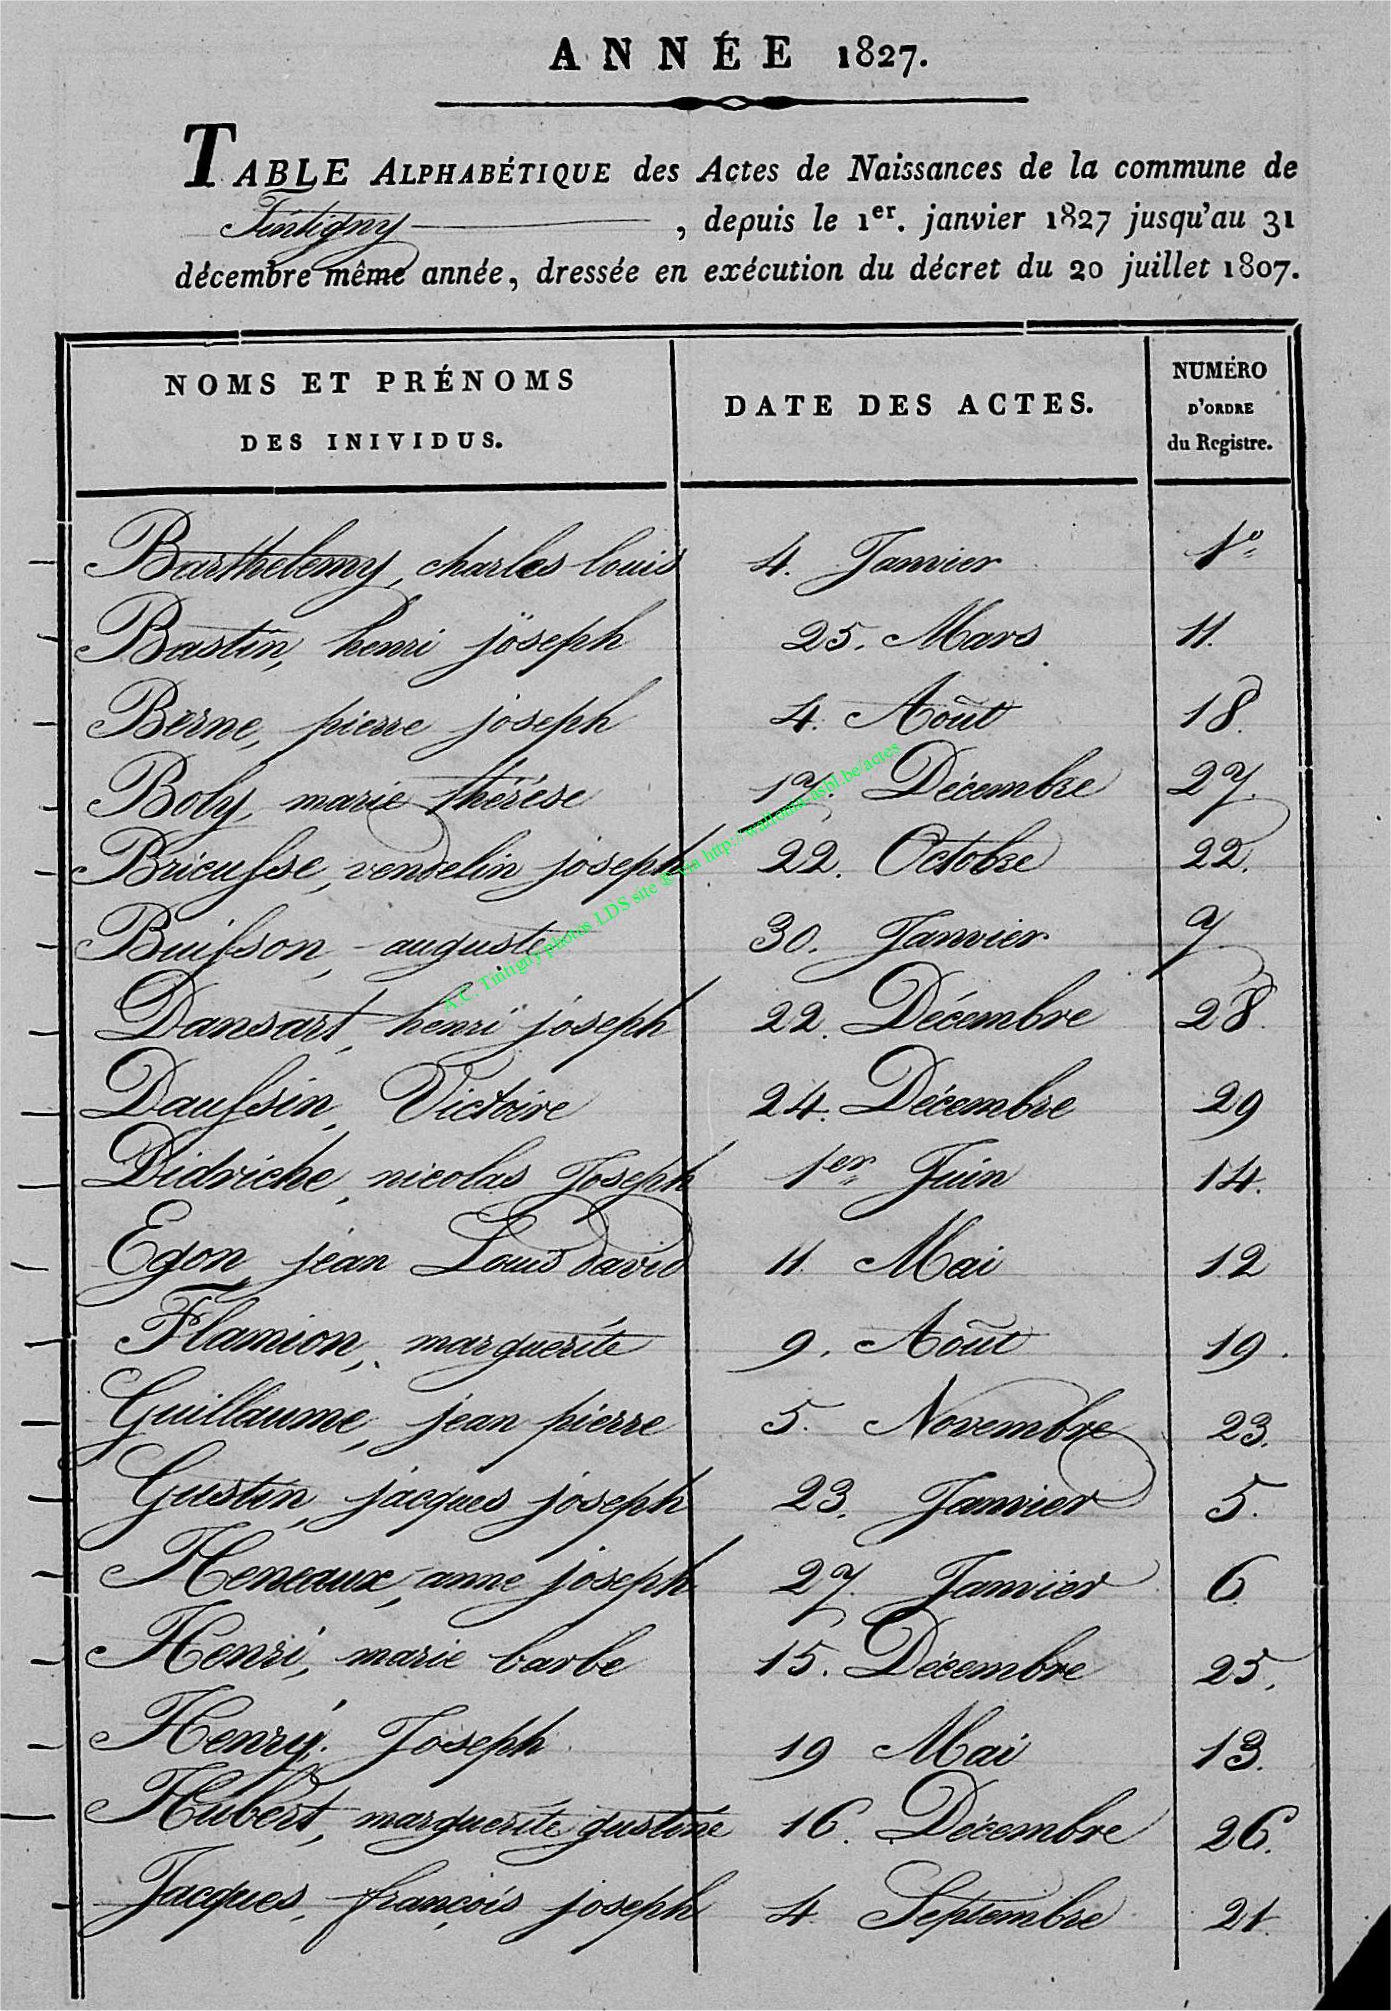 ANNÉE 1827.
TABLE ALPHABÉTIQUE des Actes de Naissances de la commune de
Tintigny, depuis le 1er. janvier 1827 jusqu'au 31
décembre même année, dressée en exécution du décret du 20 juillet 1807.
NOMS ET PRÉNOMS
DES INIVIDUS.
DATE DES ACTES.
NUMÉRO
D'ORDRE
du Registre.
Barthelemy, charles louis 4. Janvier 1º
Bastin, henri joseph 25. Mars 11.
Berne, pierre joseph 4. Août 18.
Boly, marie thérèse 17. Décembre 27.
Bricusse, vendelin joseph 22. Octobre 22.
Buisson, auguste 30. Janvier 7
Dansart, henri joseph 22. Décembre 28.
Daussin, Victoire 24. Décembre 29
Didriche, nicolas Joseph 1er Juin 14.
Egon, jean Louis david 11. Mai 12
Flamion, marguerite 9. Août 19.
Guillaume, jean pierre 5. Novembre 23.
Gustin, jacques joseph 23. Janvier 5.
Heneaux, anne joseph 27. Janvier 6
Henri, marie barbe 15. Décembre 25.
Henry, Joseph 19 Mai 13.
Hubert, marguerite gustine 16. Décembre 26.
Jacques, françois joseph 4 Septembre 21.
A.C. Tintigny photos LDS site & via http://wallonia-asbl.be/actes